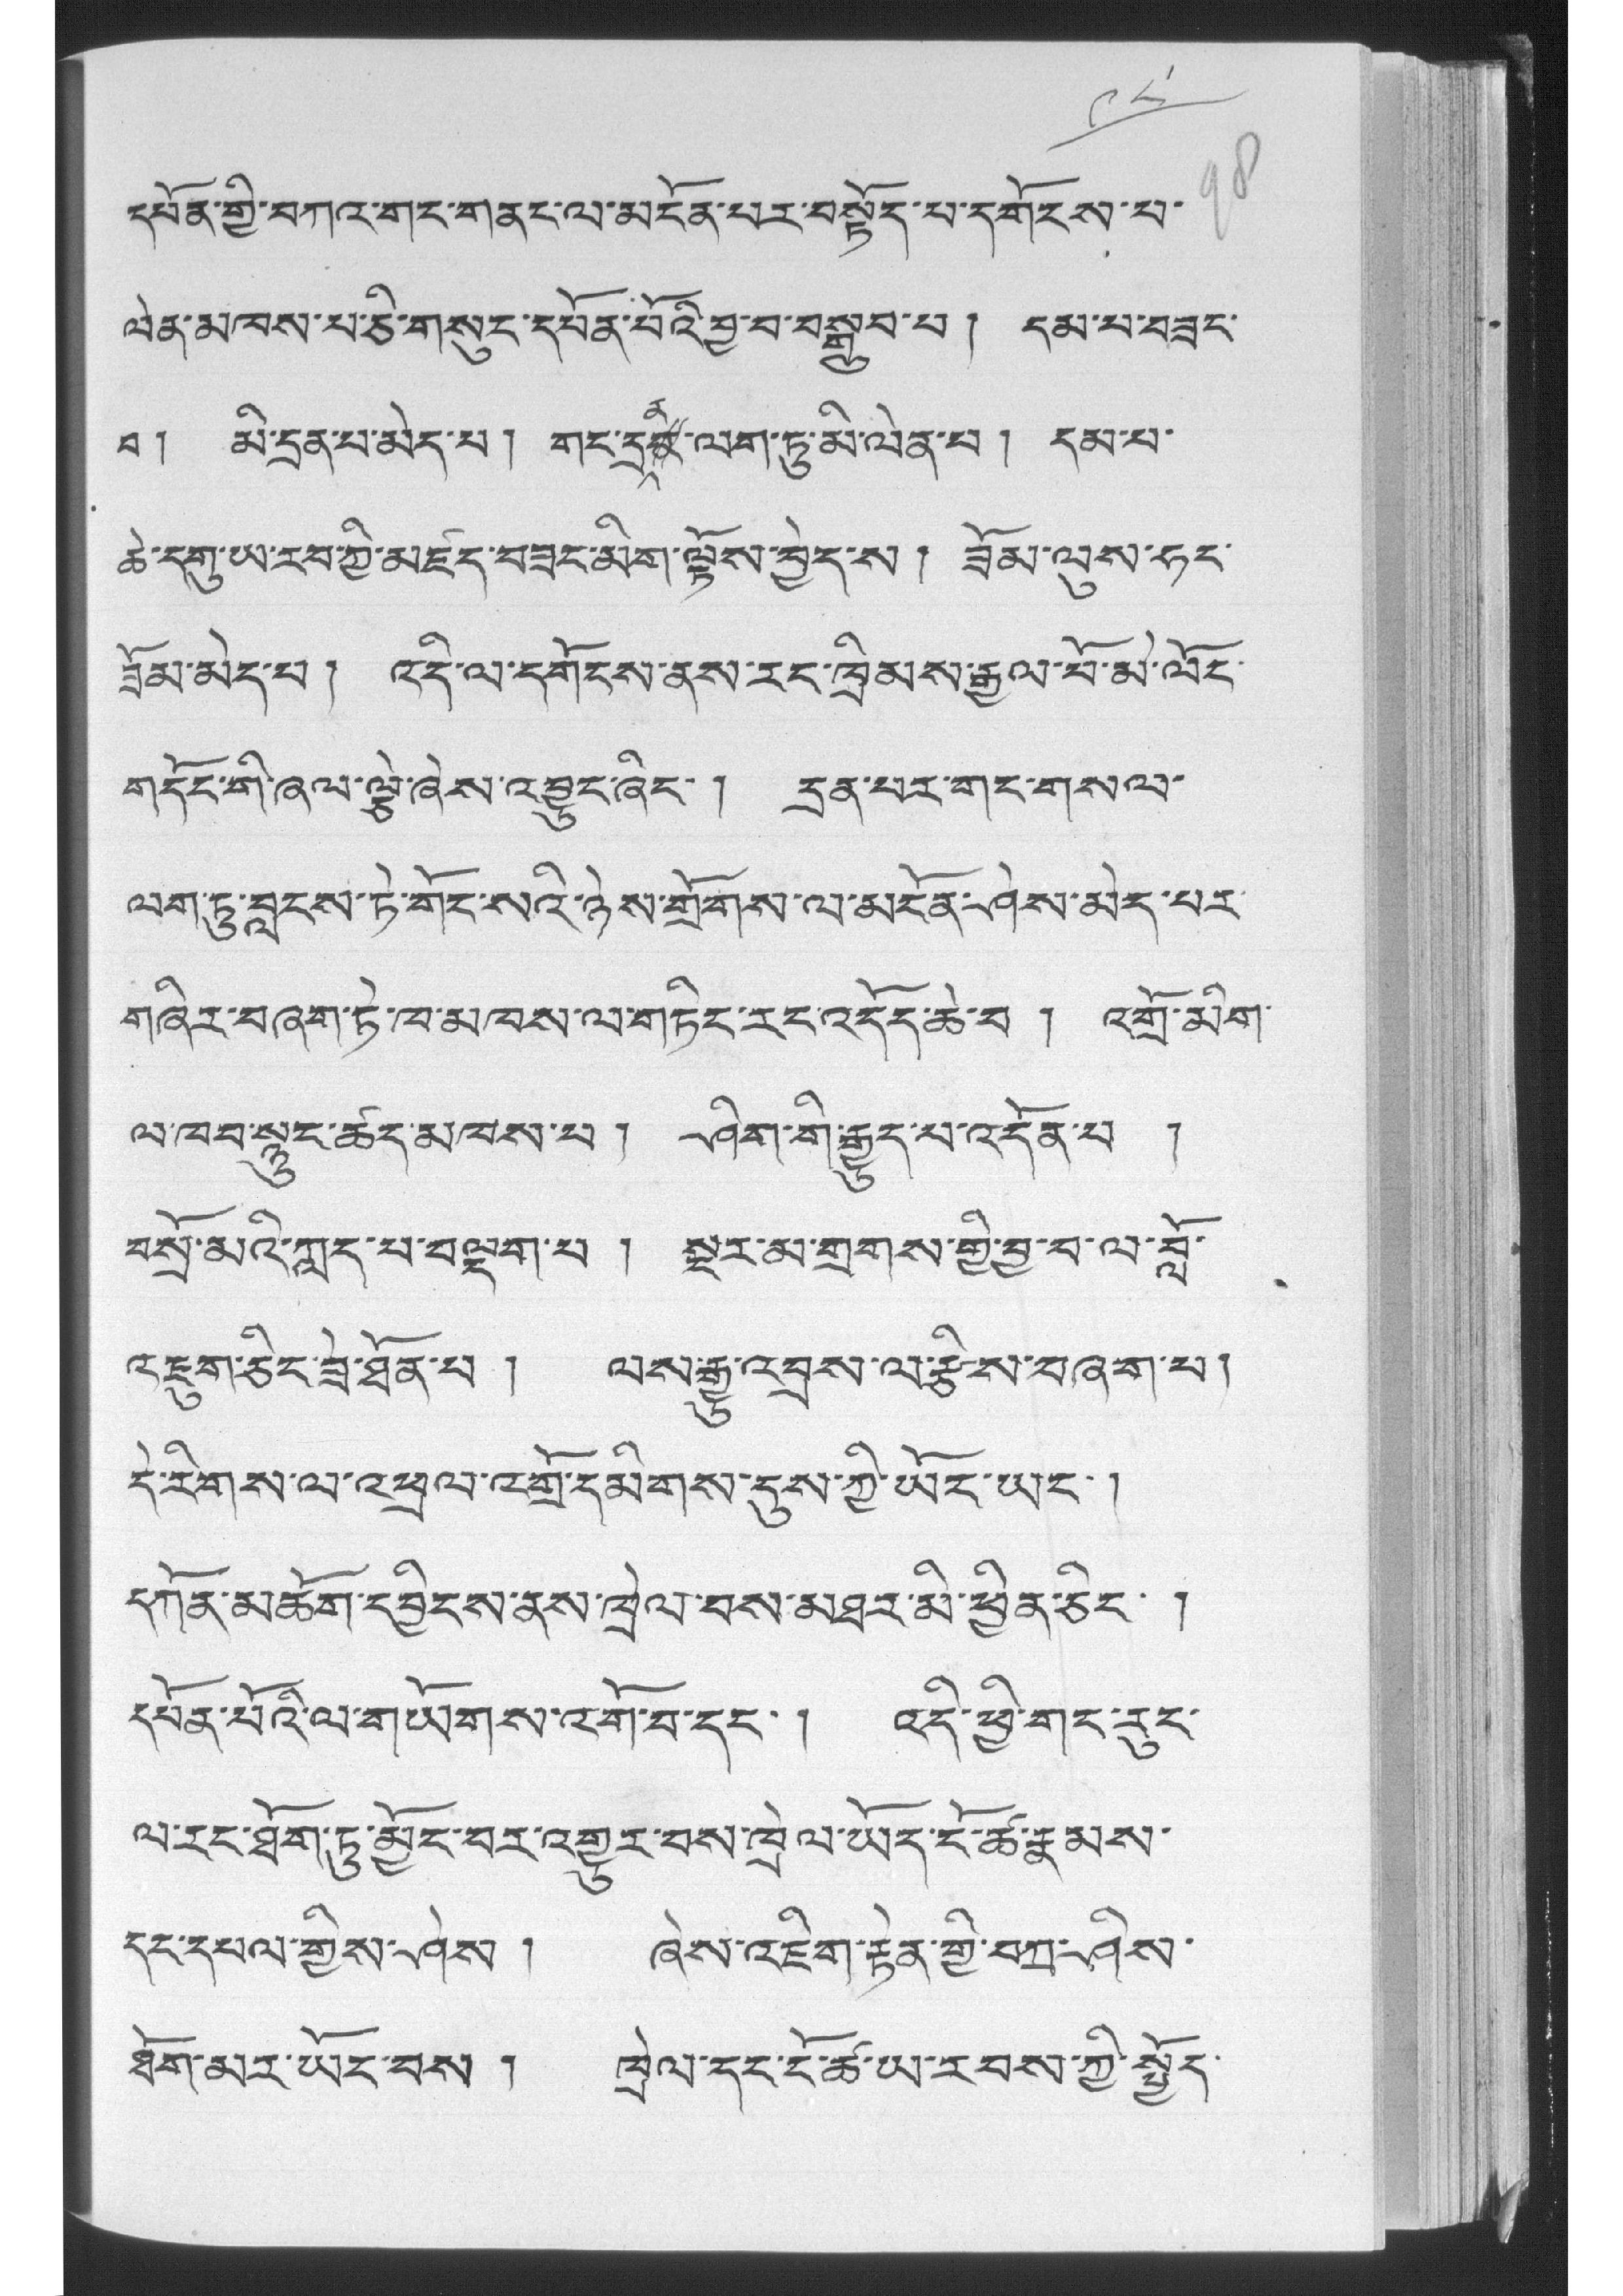 ༡༤
དཔོན་གྱི་བཀའ་གང་གནང་ལ་མངོན་པར་བསྟོད་པ་དགོངས་པ་
ལེན་མཁས་པ་ཅི་གསུང་དཔོན་པོའི་བྱ་བ་བསྒྲུབ་པ། དམ་པ་བཟང་
བ། མི་དྲན་པ་མེད་པ། གང་དྲན་ལག་ཏུ་མི་ལེན་པ། དམ་པ་
ཆེ་དགུ་ཡ་རབ་ཀྱི་མཛོད་བཟང་མིག་ལྟོས་བྱེད་ས། ཟོམ་ལུས་ཧང་
ཟོམ་མེད་པ། འདི་ལ་དགོངས་ནས་རང་ཁྲིམས་རྒྱལ་པོ་མེ་ལོང་
གདོང་གི་ཞལ་ལྕེ་ཞེས་འབྱུང་ཞིང་། དྲན་པར་གང་གསལ་
ལག་ཏུ་བླངས་ཏེ་གོང་སའི་ཉེས་གྲོགས་ལ་མངོན་ཤེས་མེད་པར་
གཞིར་བཞག་ཏེ་ཁ་མཁས་ལ་གཏིང་རང་འདོད་ཆེ་བ། འགྲོ་མིག་
ལ་ཁབ་སྟུང་ཚད་མཁས་པ། ཤིག་གི་རྒྱུད་པ་འདོན་པ །
བསྲོ་མའི་ཀླད་པ་བལྡག་པ། སྔར་མ་གྲགས་ཀྱི་བྱ་བ་ལ་བློ་
འཇུག་ཅིང་ཟེ་ཐོན་པ། ལས་རྒྱུ་འབྲས་ལ་རྩིས་བཞག་པ།
དེ་རིགས་ལ་འཕྲལ་འགྲོ་དམིགས་དུས་ཀྱི་ཡོང་ཡང་།
དཀོན་མཆོག་དབྱིངས་ནས་ཁྲེལ་བས་མཐར་མི་ཕྱིན་ཅིང་།
དཔོན་པོའི་ལ་གཡོགས་འགོ་བ་དང་། འདི་ཕྱི་གང་རུང་
ལ་རང་ཐོག་ཏུ་མྱོང་བར་འགྱུར་བས་ཁྲེལ་ཡོད་ངོ་ཚ་རྣམས་
དང་དཔལ་གྱིས་ཤེས། ཞེས་འཇིག་རྟེན་གྱི་བཀྲ་ཤིས་
ཐོག་མར་ཡོང་བས། ཁྲེལ་དང་ངོ་ཚ་ཡ་རབས་ཀྱི་སྤྱོད་